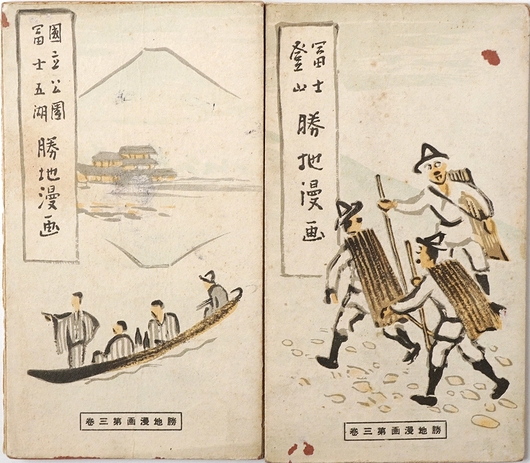 國立公園
冨士五湖
勝地漫画
勝地漫画第三卷
冨士
登山
勝地漫画
勝地漫画第三卷